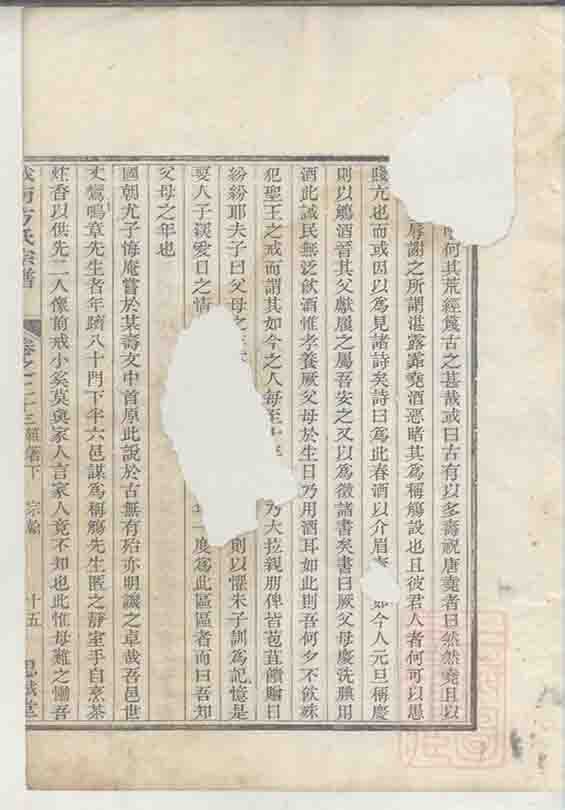 何其荒經蔑古之甚哉或曰古有以多壽祝唐堯者曰然然堯且以
辱謝之所謂湛露露堯酒惡睹其為稱觴設也且彼君人者何可以愚
賤亢也而或因以為見諸詩矣詩曰為此春酒以介眉 如今人元旦稱慶
則以觴酒晉其父獻履之屬吾安之又以為徵諸書矣書曰厥父母慶洗腆用
酒此誡民無泛飲酒惟孝養厥父母於生日乃用酒耳如此則吾何夕不飲殊
犯聖王之戒而謂其如今之人每至 乃大拉親朋俾皆苞苴饋賂日
紛紛耶夫子曰父母之 則以懼朱子訓為記憶是
要人子深愛日之情 度為此區區者而曰吾知
父母之年也
國朝尤子悔庵嘗於某壽文中首原此說於古無有殆亦明讓之卓哉吾邑世
丈鶱鳴章先生者年躋八十門下半六邑謀為稱觴先生匿之靜室手自烹茶
炷香以供先二人像前戒小奚莫與家人言家人竟不知也此惟母難之慟吾
方氏宗譜 卷之二十三 雜著下 十五 思誠堂